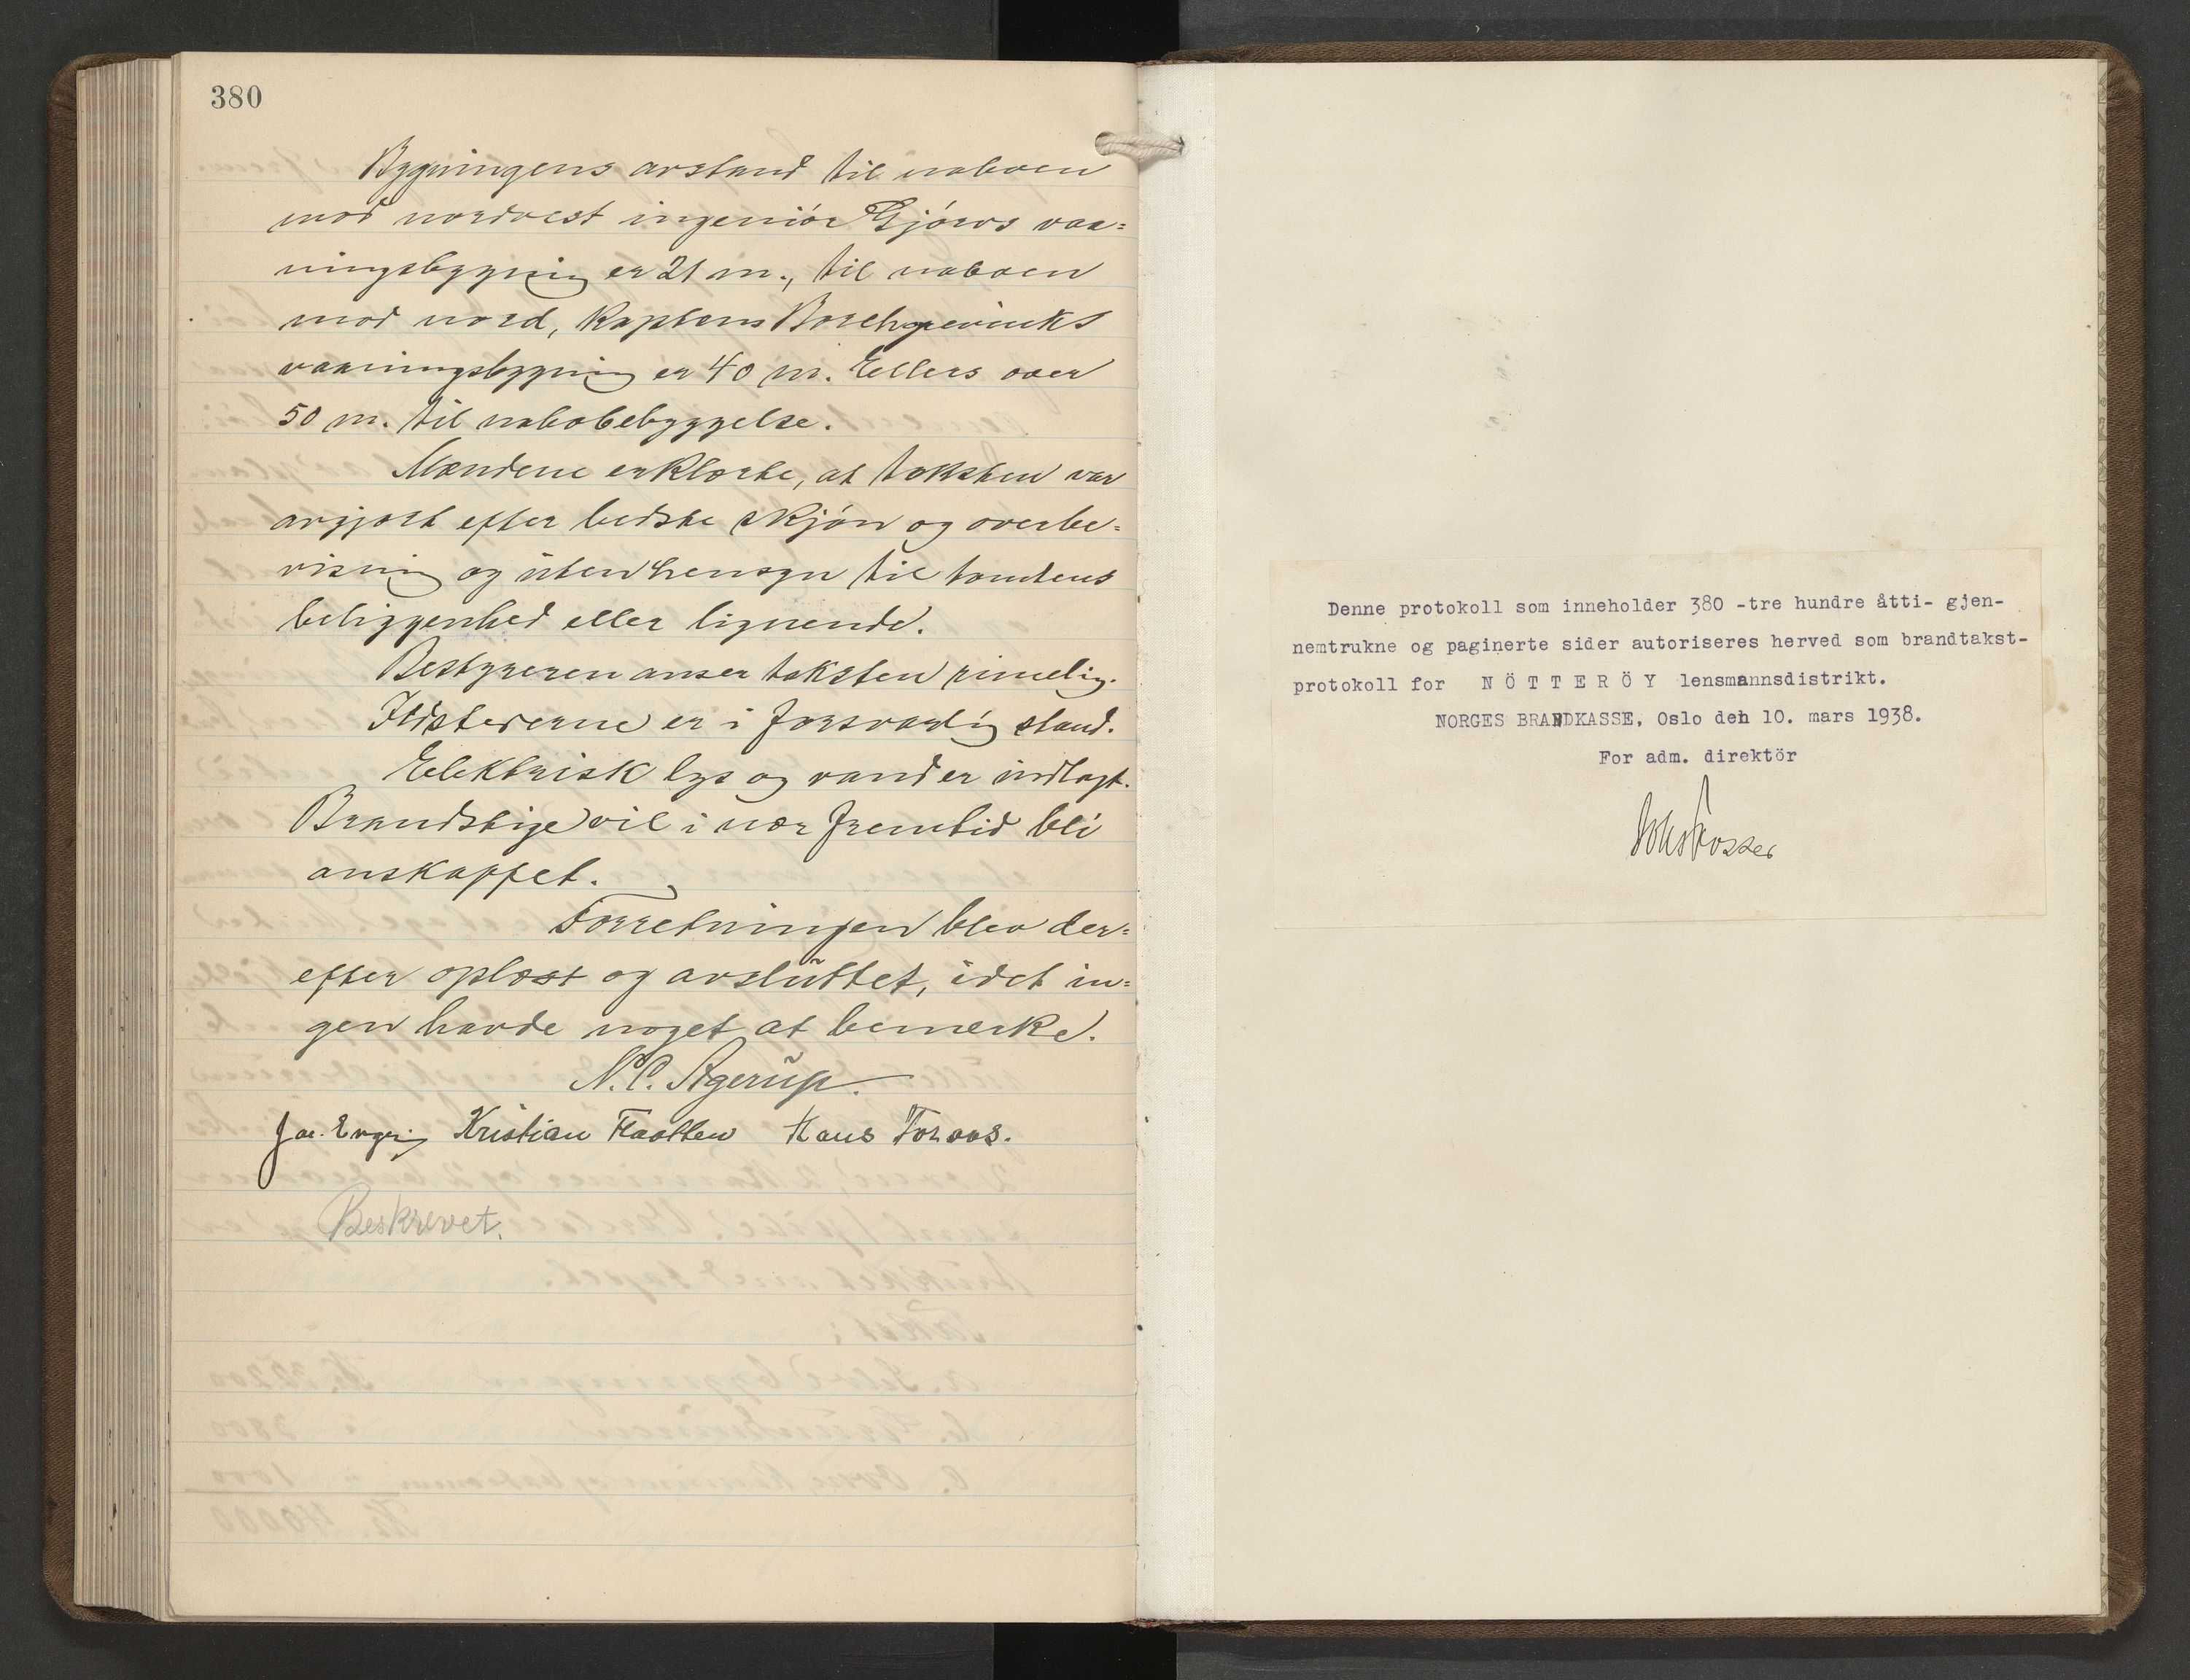 380
Bygningens avstand til naboen
mod nordvest ingeniör Gjörvs vaa=
ningsbygning er 21 m., til naboen
mod nord, Kaptens Borchgrevinks
vaaningsbygning er 40 m. Ellers over
50 m. til nabobebyggelse.
Mændene erklærte, at taksten var
avgjort efter bedste skjön og overbe=
visning og uten hensyn til tomtens
beliggenhed eller lignende.
Bestyreren anser taksten rimelig.
Ildstederne er i forsvarlig stand.
Elektrisk lys og vand er indlagt.
Brandstige vil i nær fremtid bli
anskaffet.
Forretningen blev der=
efter oplæst og avsluttet, idet in=
gen havde noget at bemerke.
N. C. Agerup.
Jac. Kristian Flaatten Hans Foraas.
Beskrevet.
Denne protokoll som inneholder 380 -tre hundre åtti- gjen-
nemtrukne og paginerte sider autoriseres herved som brandtakst-
protokoll for N Ö T T E R Ö Y lensmannsdistrikt.
NORGES BRANDKASSE, Oslo den 10. mars 1938.
For adm. direktör